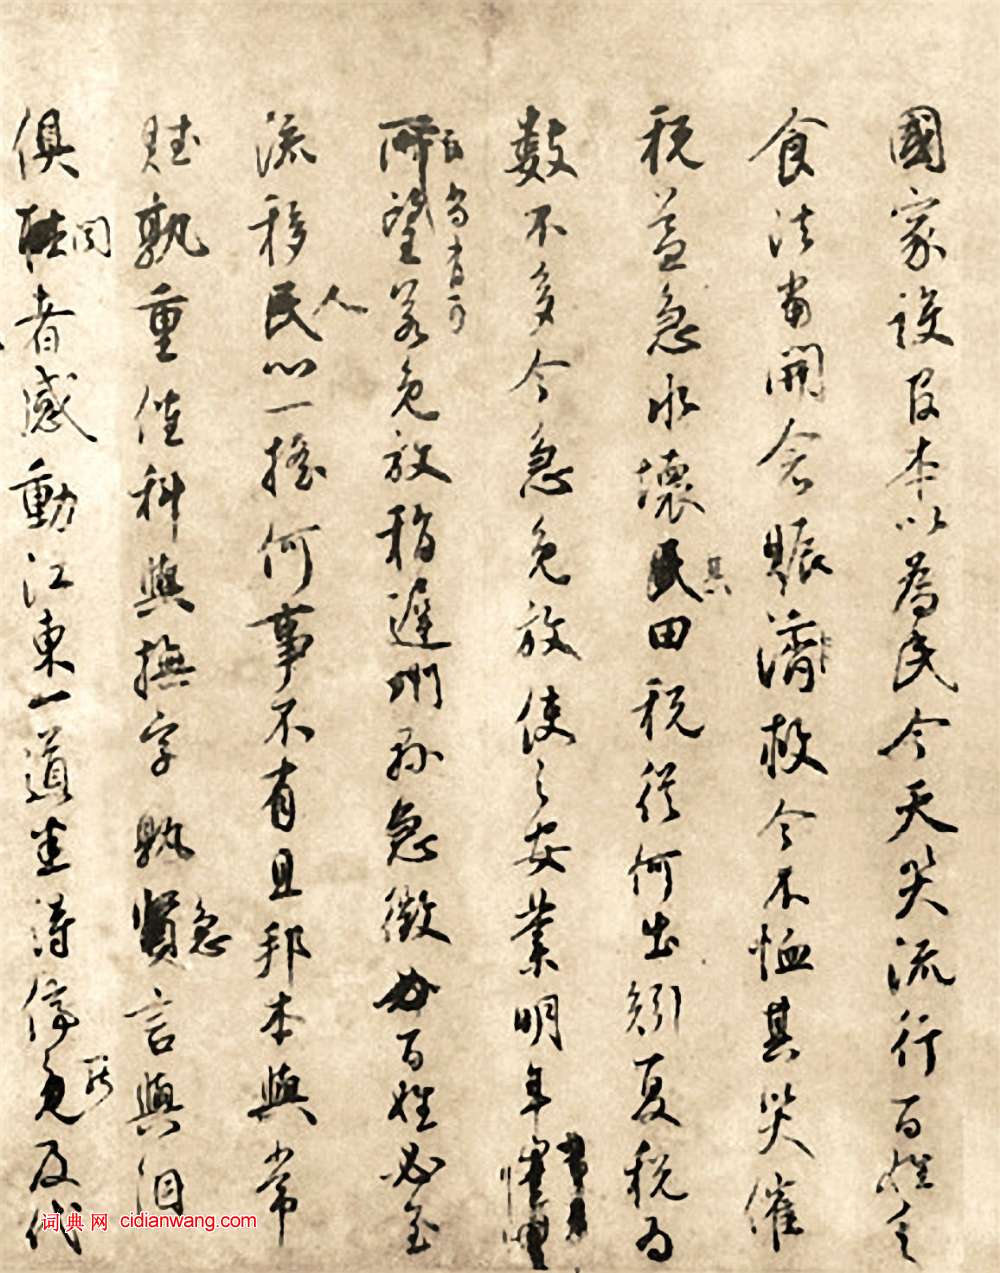 國家設官本以為民今天災流行百姓乏
食法當開倉賑濟救今不恤其災催
稅益急水壞民其田稅從何出矧夏稅為
數不多今急免放使之安業明年
所望若免放稍遲則必急徵百姓必至
百尚有可
流移民人心一搖何事不有且邦本與常
賦孰重催科與撫字孰急言與泪
俱聞者感動江東一道盡得停免及代
词典网 cidianwang.com